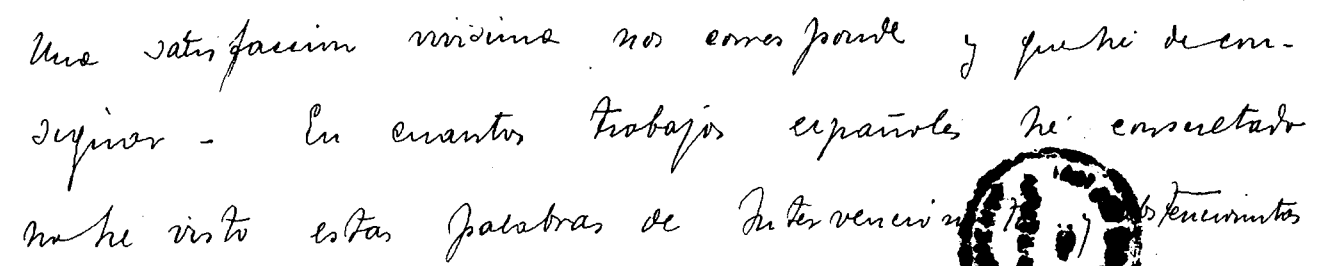 Una satisfaccion vivisima nos corresponde y que hé de con-
signar - En cuantos trabajos españoles hé consultado
no he visto estas palabras de Intervencionistas y abstencionistas